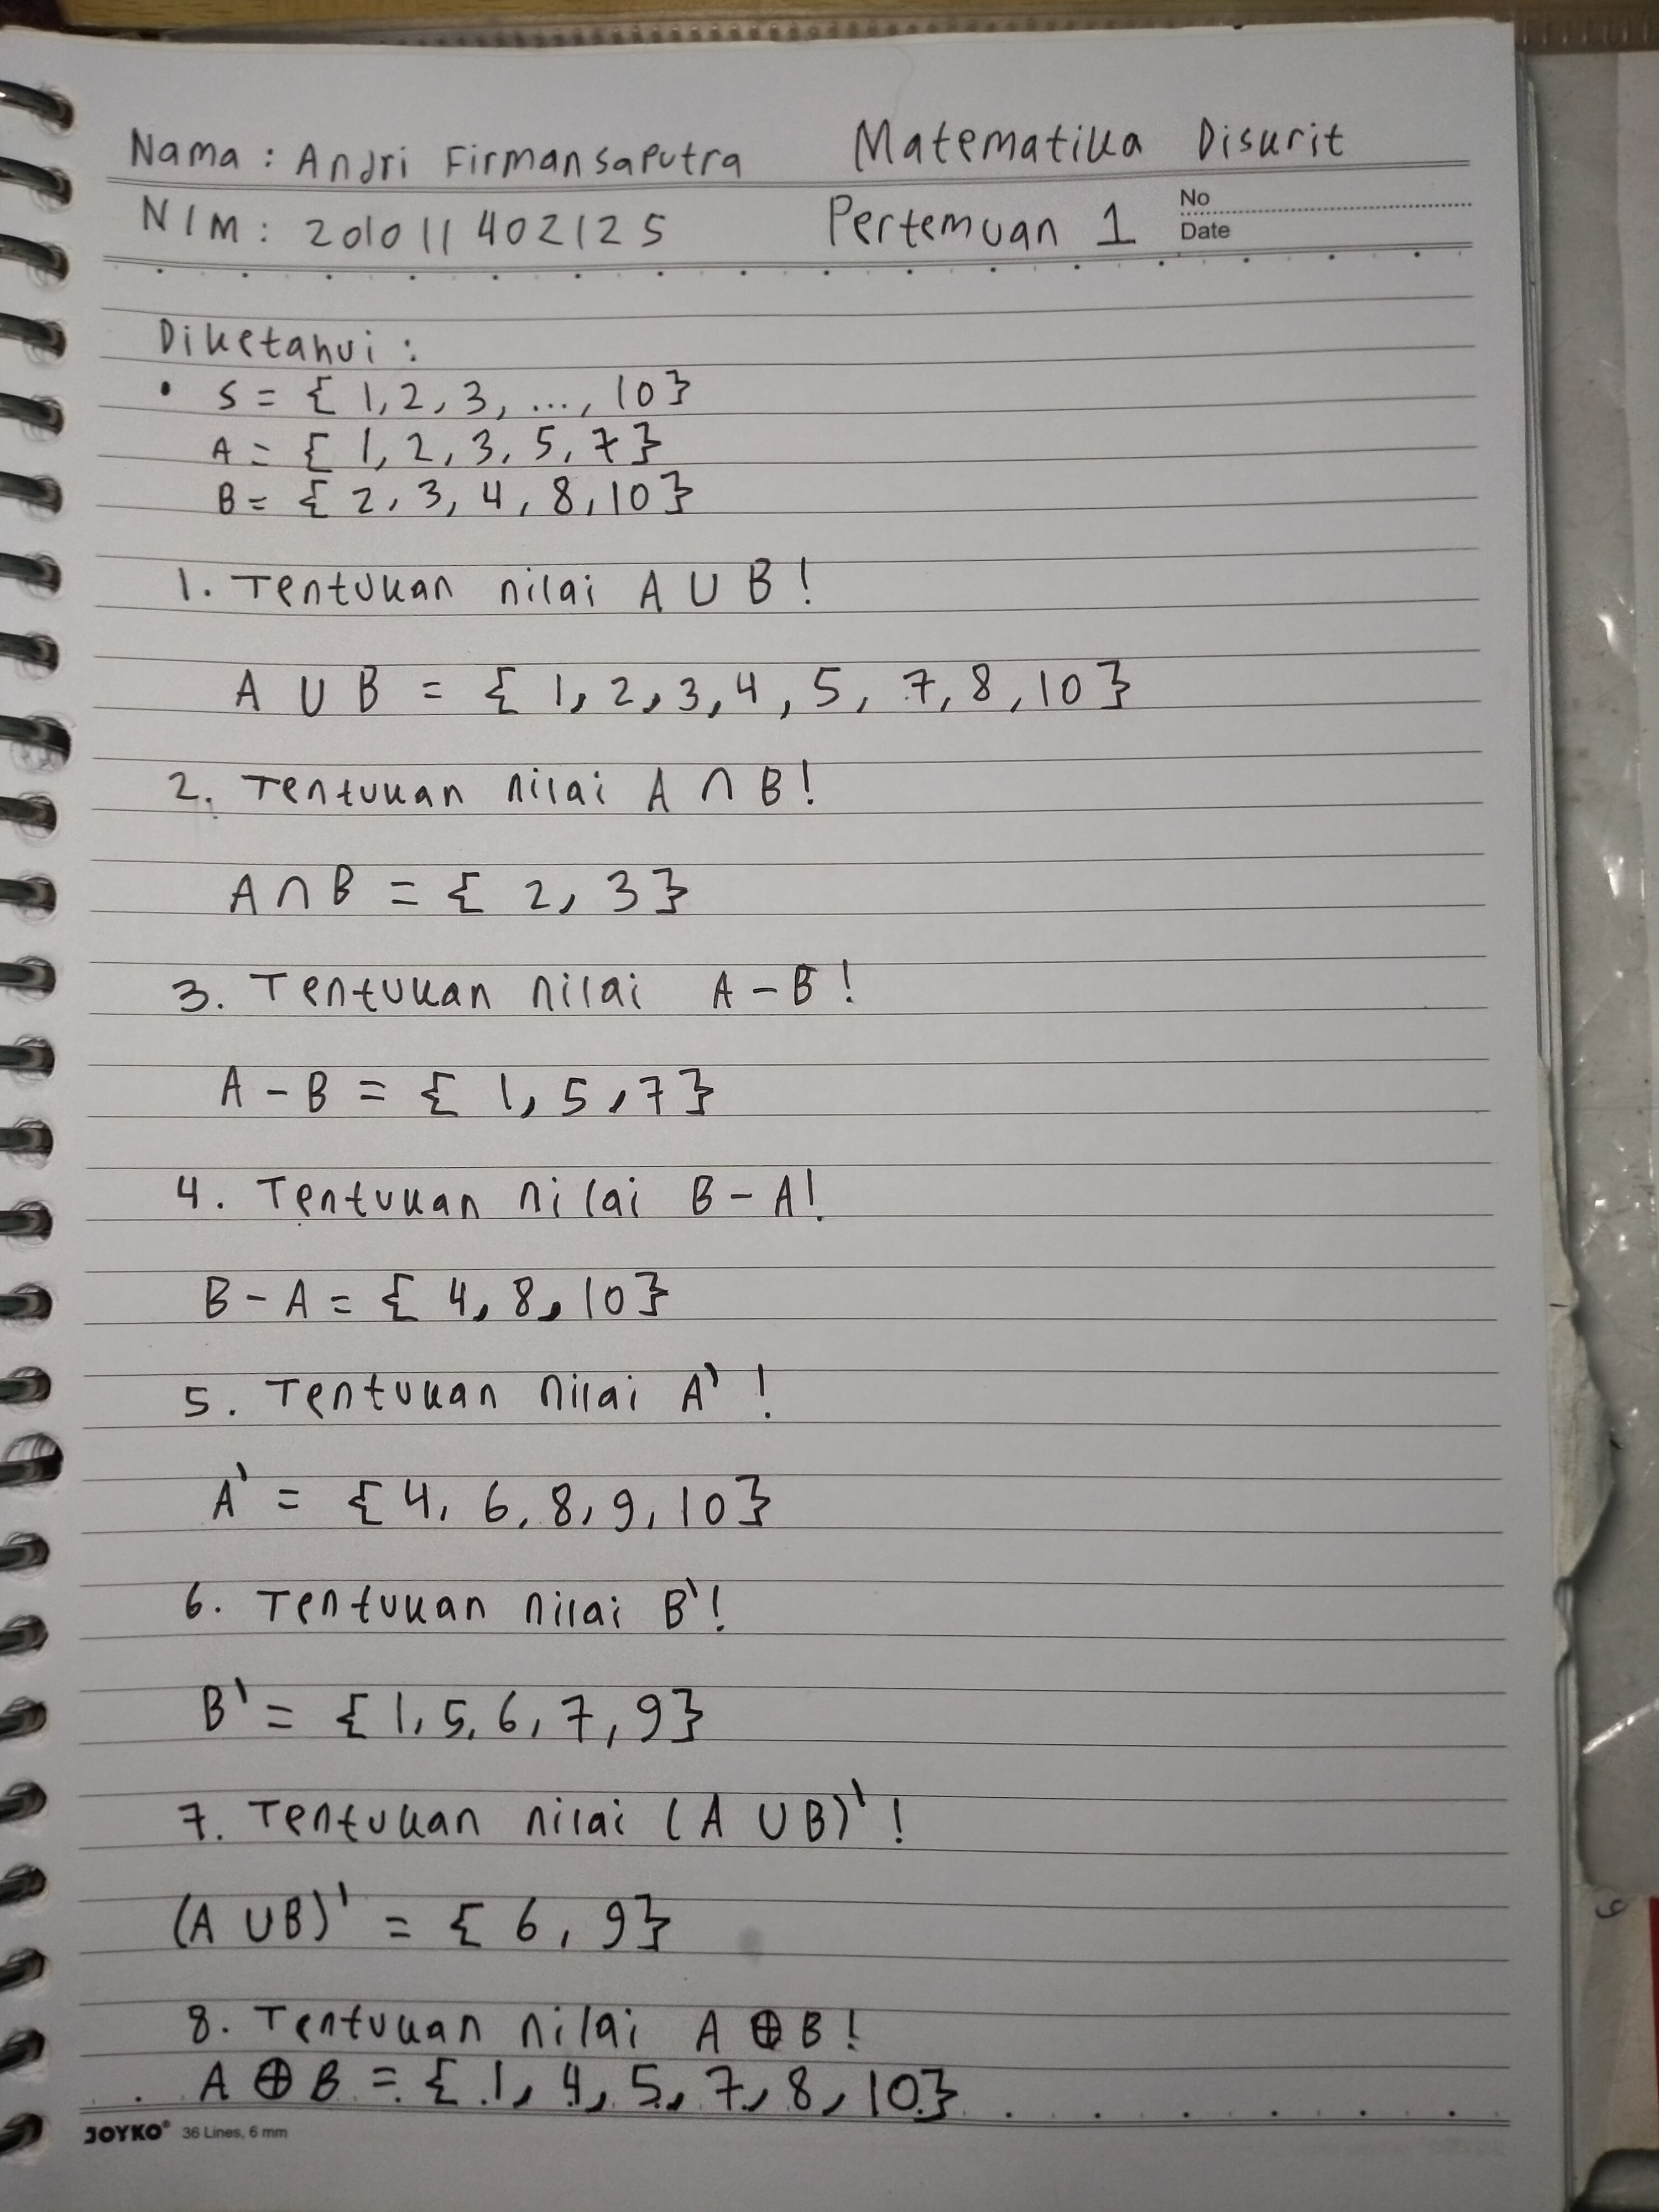 Nama : Andri Firmansaputra
Matematika Diskrit
NIM : 201011402125
Pertemuan 1
No
Date
Diketahui :
• S = { 1, 2, 3, ..., 10 }
A = { 1, 2, 3, 5, 7 }
B = { 2, 3, 4, 8, 10 }
1. Tentukan nilai A ∪ B !
A ∪ B = { 1, 2, 3, 4, 5, 7, 8, 10 }
2. Tentukan nilai A ∩ B !
A ∩ B = { 2, 3 }
3. Tentukan nilai A - B !
A - B = { 1, 5, 7 }
4. Tentukan nilai B - A !
B - A = { 4, 8, 10 }
5. Tentukan nilai A' !
A' = { 4, 6, 8, 9, 10 }
6. Tentukan nilai B' !
B' = { 1, 5, 6, 7, 9 }
7. Tentukan nilai (A ∪ B)' !
(A ∪ B)' = { 6, 9 }
8. Tentukan nilai A ⊕ B !
A ⊕ B = { 1, 4, 5, 7, 8, 10 }
JOYKO® 36 Lines, 6 mm